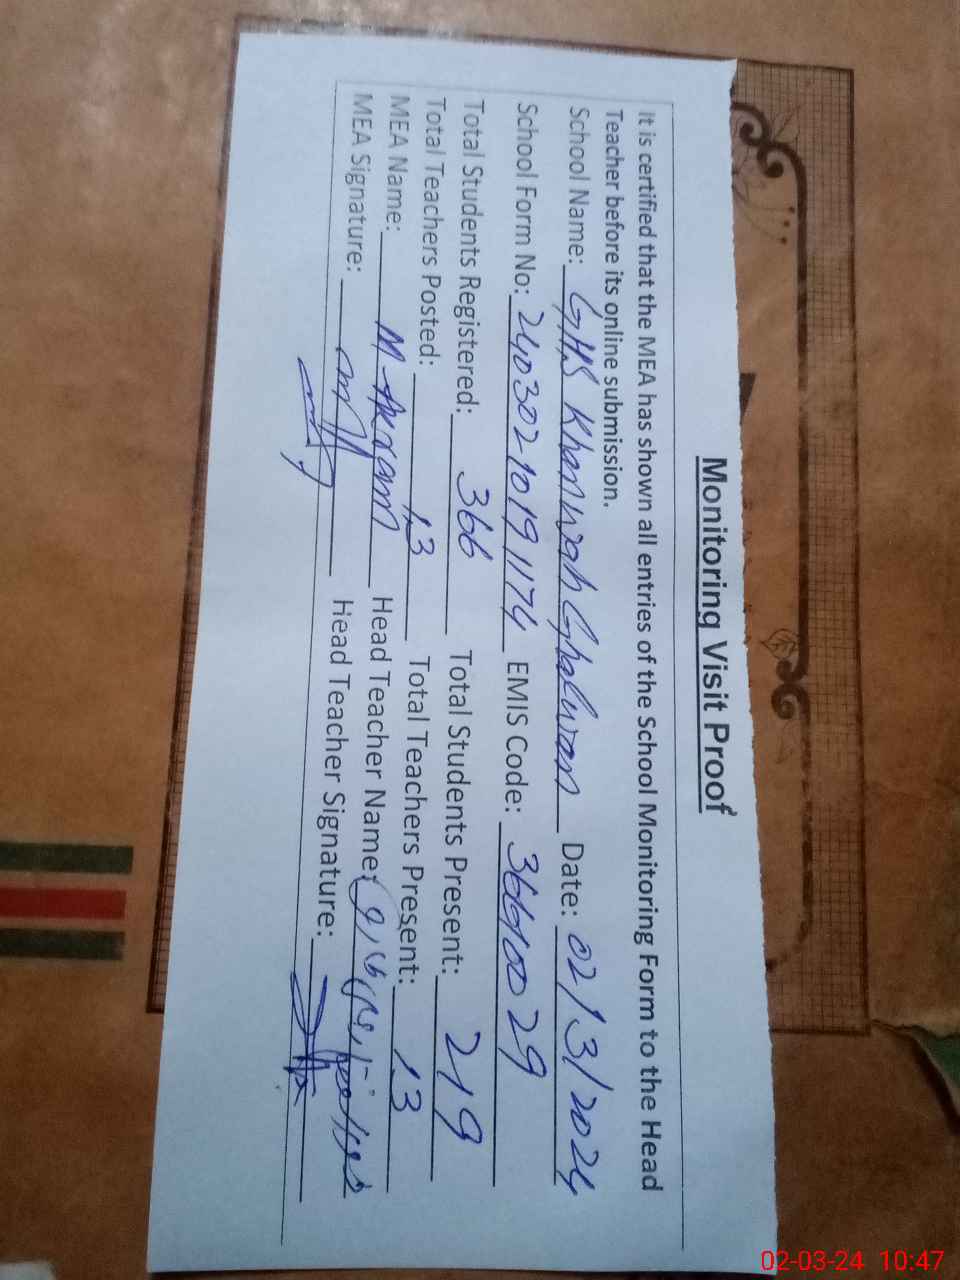 Monitoring Visit Proof
It is certified that the MEA has shown all entries of the School Monitoring Form to the Head
Teacher before its online submission.
School Name: GHS Khanwah Ghalwan Date: 02/3/2024
School Form No: 2403021019 1174 EMIS Code: 36610029
Total Students Registered: 366 Total Students Present: 219
Total Teachers Posted: 13 Total Teachers Present: 13
MEA Name: M. Akram Head Teacher Name:
MEA Signature: Head Teacher Signature:
02-03-24 10:47